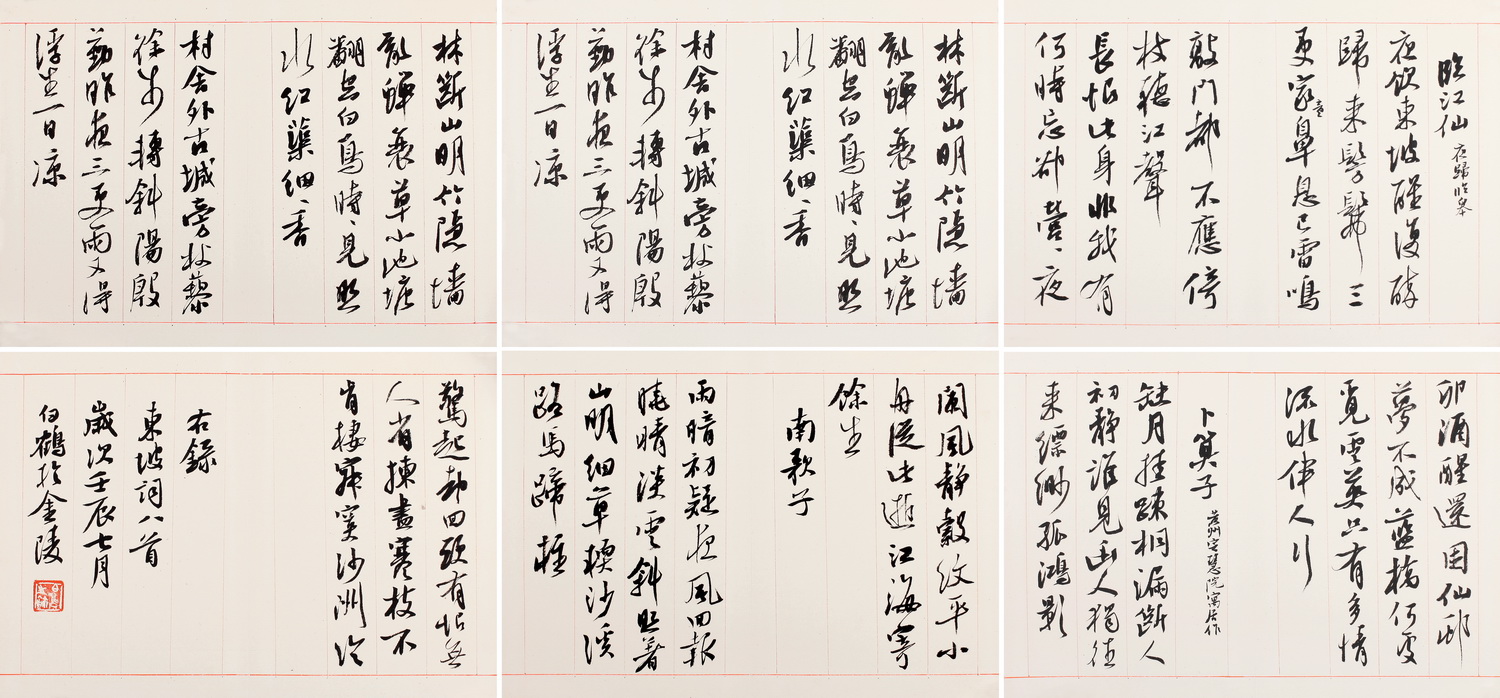 臨江仙 夜歸臨皋
夜飲東坡醒復醉
歸來髣髴三
更家童鼻息已雷鳴
敲門都不應倚
杖聽江聲
長恨此身非我有
何時忘卻營〻夜
林斷山明竹隱墻
亂蟬衰草小池塘
翻空白鳥時〻見照
水紅蕖細〻香
村舍外古城旁杖藜
徐步轉斜陽殷
勤昨夜三更雨又得
浮生一日涼
林斷山明竹隱墻
亂蟬衰草小池塘
翻空白鳥時〻見照
水紅蕖細〻香
村舍外古城旁杖藜
徐步轉斜陽殷
勤昨夜三更雨又得
浮生一日涼
卯酒醒還困仙邨
夢不成藍橋何處
覓雲英只有多情
流水伴人行
卜算子 黃州定慧院寓居作
缺月挂疎桐漏斷人
初靜誰見幽人獨往
来縹緲孤鴻影
闌風靜縠紋平小
舟從此逝江海寄
餘生
南歌子
雨暗初疑夜風回報
晚晴淡雲斜照著
山明細草輭沙溪
路馬蹄輕
驚起却回頭有恨無
人省揀盡寒枝不
肯棲寂寞沙洲冷
右錄
東坡詞八首
歲次壬辰七月
白鶴於金陵